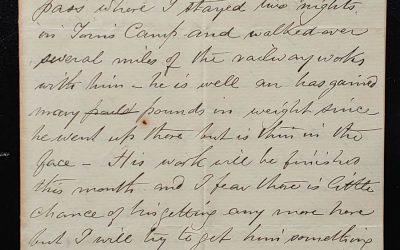 pass where I stayed two nights
in Tom's Camp and walked over
several miles of the railway works
with him – he is well an has gained
many pounds in weight since
he went up there but is thin in the
face – His work will be finished
this month and I fear there is little
chance of his getting any more here
but I will try to get him something